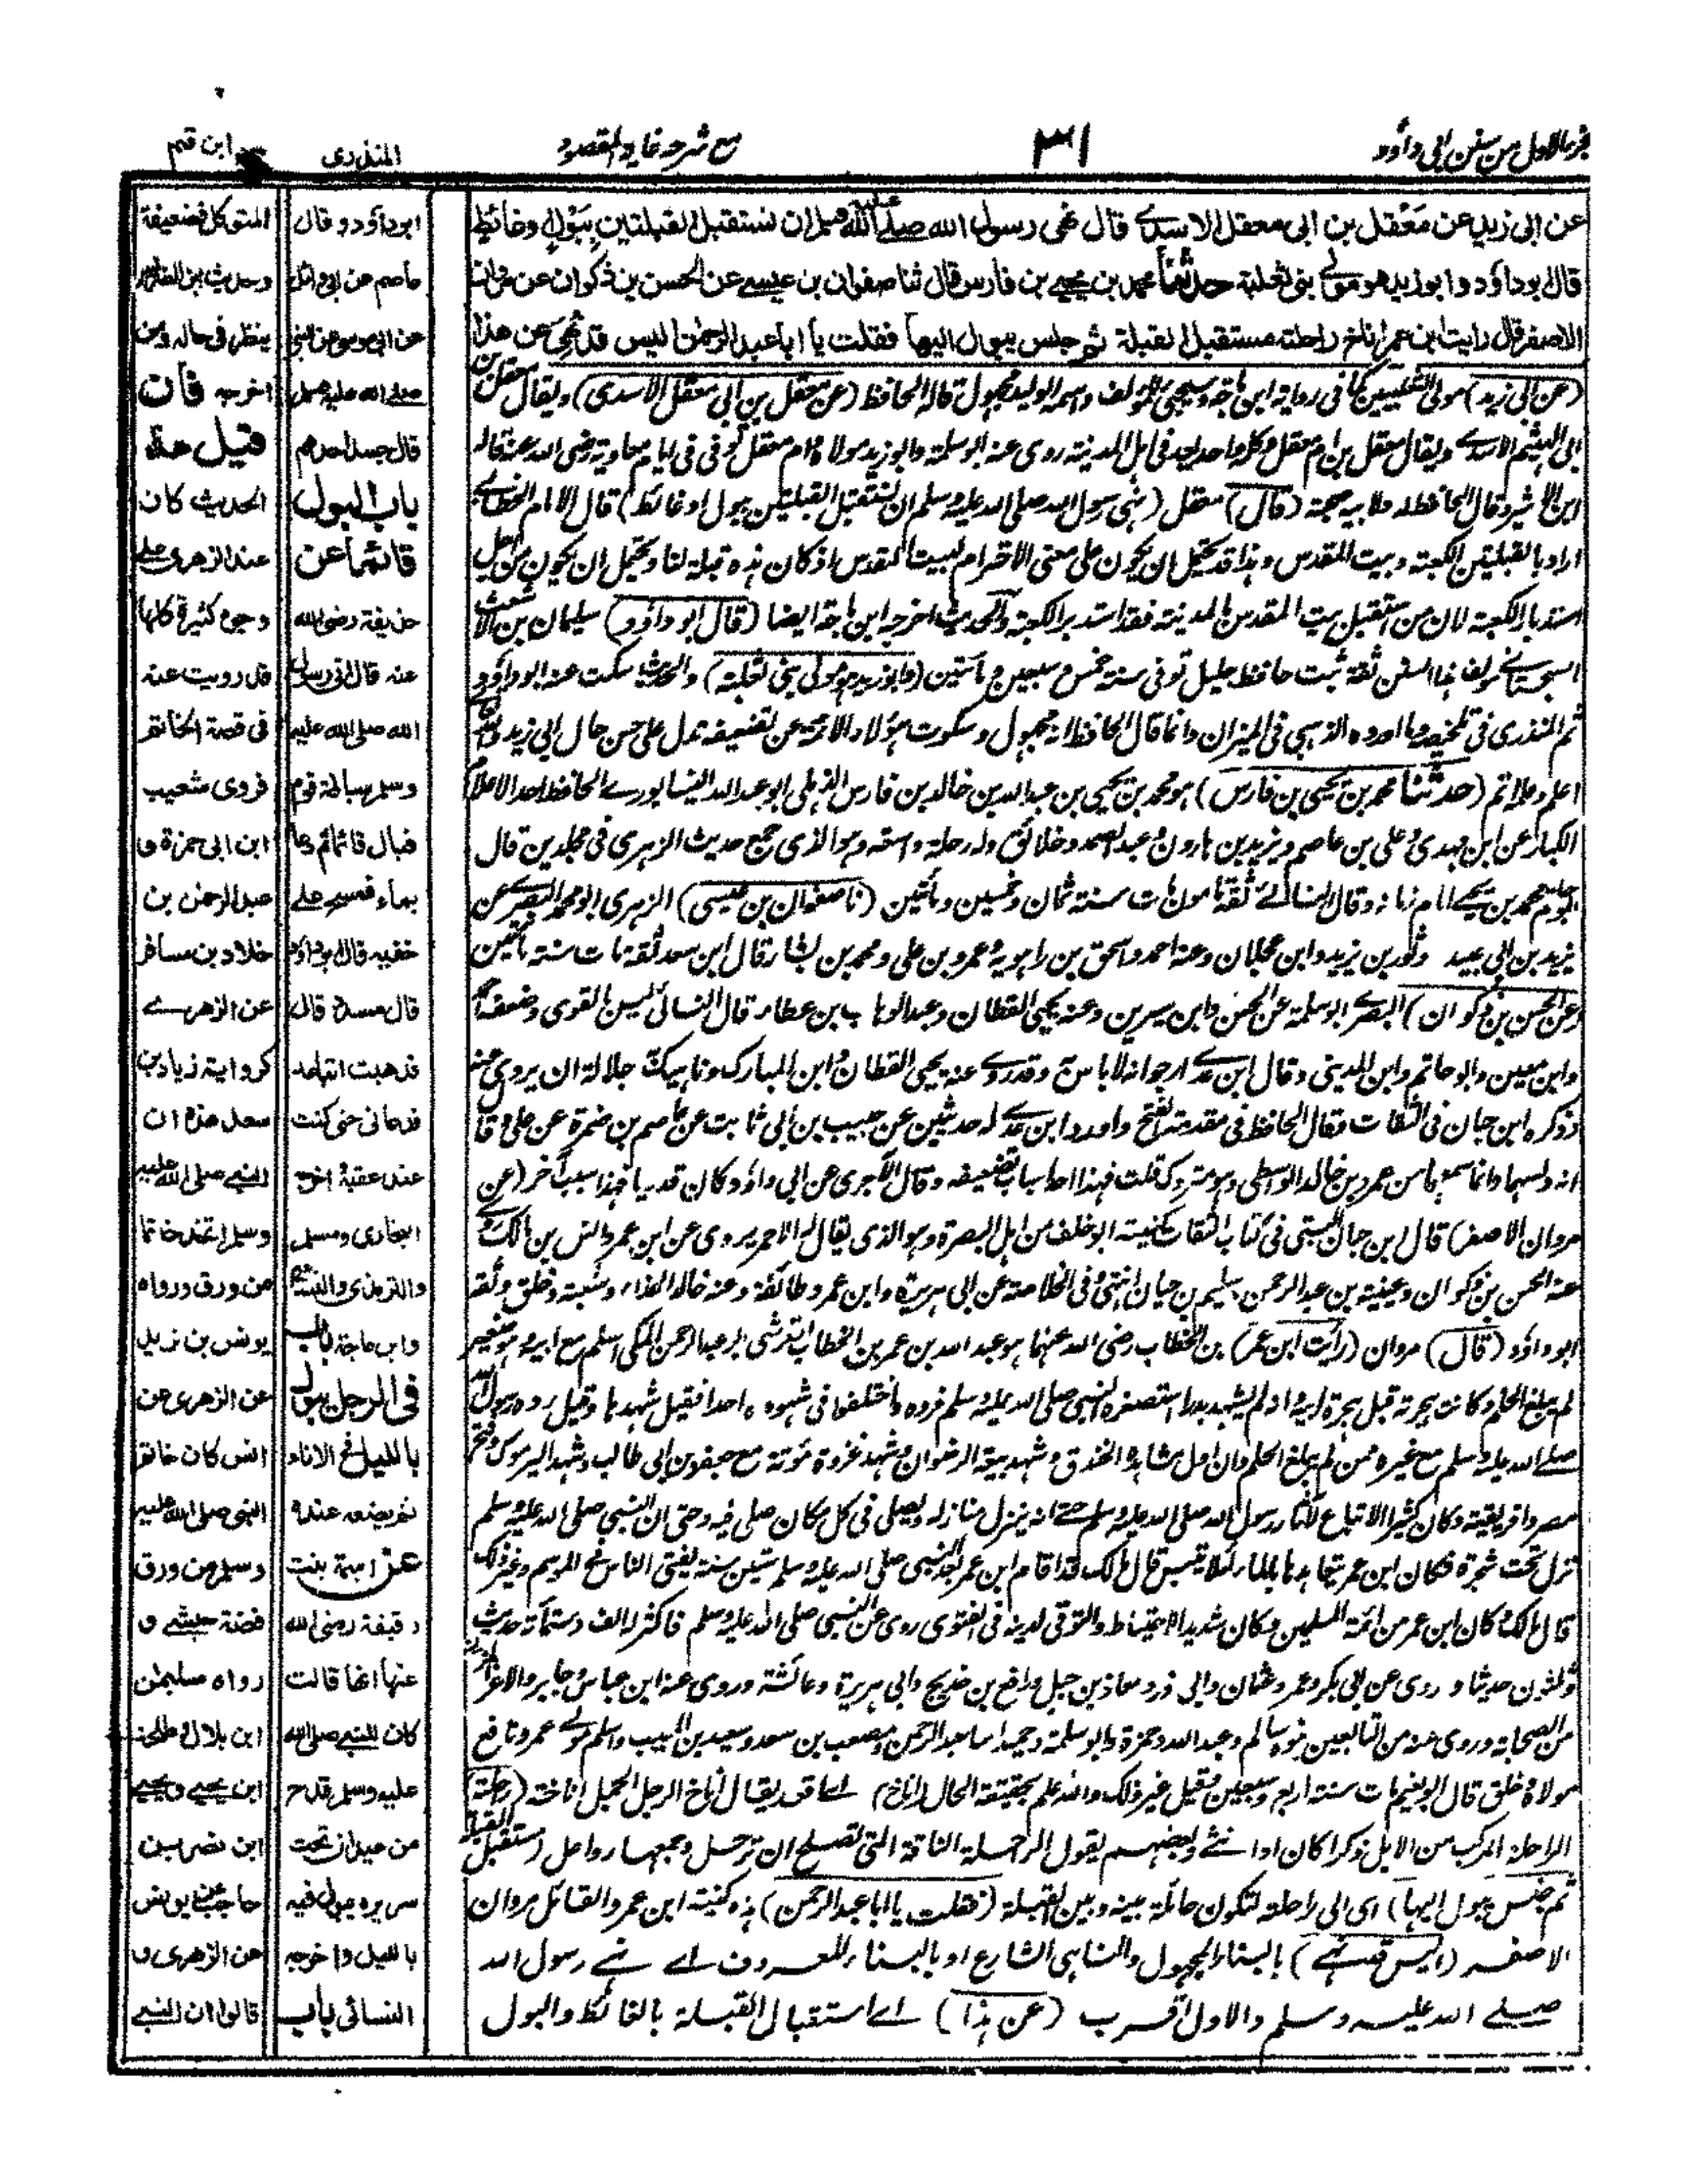 الجزء الاول من سنن ابی داؤد
٣١
مع شرحہ غایة المقصود
المنذری
ابن قیم
عن ابی زید عن معقل بن ابی معقل الاسدی قال نهی رسول الله صلی الله علیه وسلم ان نستقبل القبلتین ببول وغائط
قال ابو داؤد وابو زید هو مولی بنی ثعلبة حدثنا محمد بن یحیی بن فارس قال ثنا صفوان بن عیسی عن الحسن بن ذکوان عن مروان
الاصفر قال رایت ابن عمر اناخ راحلته مستقبل القبلة ثم جلس یبول الیها فقلت یا ابا عبد الرحمن الیس قد نهی عن هذا
(عن ابی زید) مولی الثعلبیین کما فی روایة ابن ماجة وسیجئ للمؤلف واسمه الولید مجهول قاله الحافظ (عن معقل بن ابی معقل الاسدی) ویقال معقل بن
ابی الهیثم الاسدی ویقال معقل بن ام معقل وکله واحد یعد فی اهل المدینة روی عنه ابو سلمة وابو زید مولاه وام معقل توفی فی ایام معاویة رضی الله عنه قاله
ابن الاثیر وقال الحافظ له ولابیه صحبة (قال) معقل (نهی رسول الله صلی الله علیه وسلم ان نستقبل القبلتین ببول او غائط) قال الامام الخطابی
اراد بالقبلتین الکعبة وبیت المقدس وهذا قد یحتمل ان یکون علی معنی الاحترام لبیت المقدس اذ کان هذه قبلة لنا ویحتمل ان یکون من اجل
استدبار الکعبة لان من استقبل بیت المقدس بالمدینة فقد استدبر الکعبة والحدیث اخرجه ابن ماجة ایضا (قال ابو داؤد) سلیمان بن الاشعث
السجستانی مؤلف هذا السنن ثقة ثبت حافظ جلیل توفی سنة خمس وسبعین ومأتین (وابو زید هو مولی بنی ثعلبة) والحدیث سکت عنه ابو داؤد
ثم المنذری فی تلخیصه وما اورده الذهبی فی المیزان وانما قال الحافظ انه مجهول وسکوت هؤلاء الائمة عن تضعیفه تدل علی حسن حال ابی زید والله
اعلم وعلمه اتم (حدثنا محمد بن یحیی بن فارس) هو محمد بن یحیی بن عبد الله بن خالد بن فارس الذهلی ابو عبد الله النیسابوری الحافظ احد الاعلام
الکبار عن ابن مهدی وعلی بن عاصم ویزید بن هارون وعبد الصمد وخلائق وله رحلة واسعة وهو الذی جمع حدیث الزهری فی مجلدین قال
ابو حاتم محمد بن یحیی امام زمانه وقال النسائی ثقة مامون مات سنة ثمان وخمسین ومأتین (نا صفوان بن عیسی) الزهری ابو محمد البصری عن
یزید بن ابی عبید وثور بن یزید وابن عجلان وعنه احمد واسحق بن راهویه وعمرو بن علی ومحمد بن بشار قال ابن سعد ثقة مات سنة مأتین
(عن الحسن بن ذکوان) البصری ابو سلمة عن الحسن وابن سیرین وعنه یحیی القطان وعبد الوهاب بن عطاء قال النسائی لیس بالقوی وضعفه احمد
وابن معین وابو حاتم وابن المدینی وقال ابن عدی ارجو انه لا باس به وقد روی عنه یحیی القطان وابن المبارک وناهیک جلالة ان یروی عنه
وذکره ابن حبان فی الثقات وقال الحافظ فی مقدمة الفتح واورد ابن عدی له حدیثین عن حبیب بن ابی ثابت عن عاصم بن ضمرة عن علی وقال
انه دلسهما وانما سمعهما من عمرو بن خالد الواسطی وهو متروک قلت فهذا احد اسباب تضعیفه وقال الآجری عن ابی داؤد کان قدریا فهذا سبب آخر (عن
مروان الاصفر) قال ابن حبان البستی فی کتاب الثقات کنیته ابو خلف من اهل البصرة وهو الذی یقال له الاحمر یروی عن ابن عمر وانس بن مالک روی
عنه الحسن بن ذکوان وعیینة بن عبد الرحمن وسلیم بن حیان انتهی وفی الخلاصة عن ابی هریرة وابن عمر وطائفة وعنه خالد الحذاء وشعبة وخلق وثقه
ابو داؤد (قال) مروان (رأیت ابن عمر) بن الخطاب رضی الله عنهما هو عبد الله بن عمر بن الخطاب القرشی ابو عبد الرحمن المکی اسلم مع ابیه وهو صغیر
لم یبلغ الحلم وکانت هجرته قبل هجرة ابیه اذ لم یشهد بدرا استصغره النبی صلی الله علیه وسلم فرده واختلفوا فی شهوده احدا فقیل شهدها وقیل رده رسول الله
صلی الله علیه وسلم مع غیره ممن لم یبلغ الحلم وان اول مشاهده الخندق وشهد بیعة الرضوان وشهد غزوة موتة مع جعفر بن ابی طالب وشهد الیرموک وفتح
مصر وافریقیة وکان کثیر الاتباع لآثار رسول الله صلی الله علیه وسلم حتی انه ینزل منازله ویصلی فی کل مکان صلی فیه وحتی ان النبی صلی الله علیه وسلم
نزل تحت شجرة فکان ابن عمر یتعاهدها بالماء لئلا تیبس قال مالک قد اقام ابن عمر بعد النبی صلی الله علیه وسلم ستین سنة یفتی الناس فی الموسم وغیر ذلک
قال مالک کان ابن عمر من ائمة المسلمین وکان شدید الاحتیاط والتوقی لدینه فی الفتوی روی عن النبی صلی الله علیه وسلم فاکثر الف وستمأة حدیث
وثلثون حدیثا وروی عن ابی بکر وعمر وعثمان وابی ذر ومعاذ بن جبل ورافع بن خدیج وابی هریرة وعائشة وروی عنه ابن عباس وجابر والاغر المزنی
من الصحابة وروی عنه من التابعین بنوه سالم وعبد الله وحمزة وابو سلمة وحمید ابنا عبد الرحمن ومصعب بن سعد وسعید بن المسیب واسلم مولی عمر ونافع
مولاه وخلق قال ابو نعیم مات سنة اربع وسبعین وقیل غیر ذلک والله اعلم بحقیقة الحال (اناخ) ای اقعد یقال اناخ الرجل الجمل اناخة (راحلته)
الراحلة المرکب من الابل ذکرا کان او انثی وبعضهم یقول الراحلة الناقة التی تصلح ان ترحل وجمعها رواحل (مستقبل القبلة
ثم جلس یبول الیها) ای الی راحلته لتکون حائلة بینه وبین القبلة (فقلت یا ابا عبد الرحمن) هذه کنیة ابن عمر والقائل مروان
الاصفر (الیس قد نهی) بالبناء للمجهول والناهی الشارع او بالبناء للمعروف ای نهی رسول الله
صلی الله علیه وسلم والاول اقرب (عن هذا) ای استقبال القبلة بالغائط والبول
ابو داؤد وقال
عاصم عن ابی وائل
عن ابی موسی عن النبی
صلی الله علیه وسلم
قال جسد احدهم
باب البول
قائما عن
حذیفة رضی الله
عنه قال اتی رسول
الله صلی الله علیه
وسلم سباطة قوم
فبال قائما ثم دعا
بماء فمسح علی
خفیه قال ابو داؤد
قال مسدد قال
فذهبت اتباعد
فدعانی حتی کنت
عند عقبه اخرجه
البخاری ومسلم
والترمذی والنسائی
وابن ماجة باب
فی الرجل یبول
باللیل فی الاناء
ثم یضعه عنده
عن امیمة بنت
رقیقة رضی الله
عنها انها قالت
کان للنبی صلی الله
علیه وسلم قدح
من عیدان تحت
سریره یبول فیه
باللیل واخرجه
النسائی باب
المتوکل فضعیفة
وحدیث ابن الضریس
ینظر فی حاله ومن
اخرجه فان
قیل هذا
الحدیث کان
عند الزهری علی
وجوه کثیرة کلها
قد رویت عنه
فی قصة الخاتم
فروی شعیب
ابن ابی حمزة و
عبد الرحمن بن
خلاد بن مسافر
عن الزهری
کروایة زیاد بن
سعد هذه ان
النبی صلی الله علیه
وسلم اتخذ خاتما
من ورق ورواه
یونس بن یزید
عن الزهری عن
انس کان خاتم
النبی صلی الله علیه
وسلم من ورق
فضة حبشی و
رواه سلیمن
ابن بلال وطلحة
ابن یحیی ویحیی
ابن نصر بن
حاجب عن یونس
عن الزهری و
قالوا ان النبی